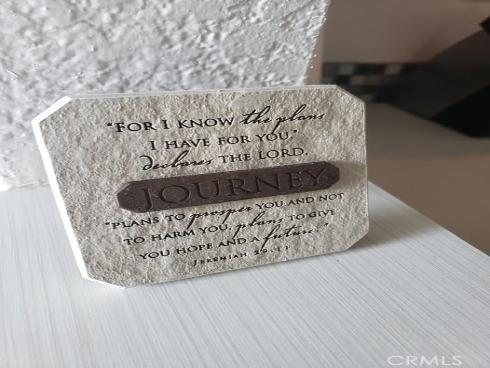 "FOR I KNOW the plans
I HAVE FOR YOU"
declares THE LORD,
JOURNEY
"PLANS TO prosper YOU AND NOT
TO HARM YOU, plans TO GIVE
YOU HOPE AND A future."
JEREMIAH 29:11
CRMLS